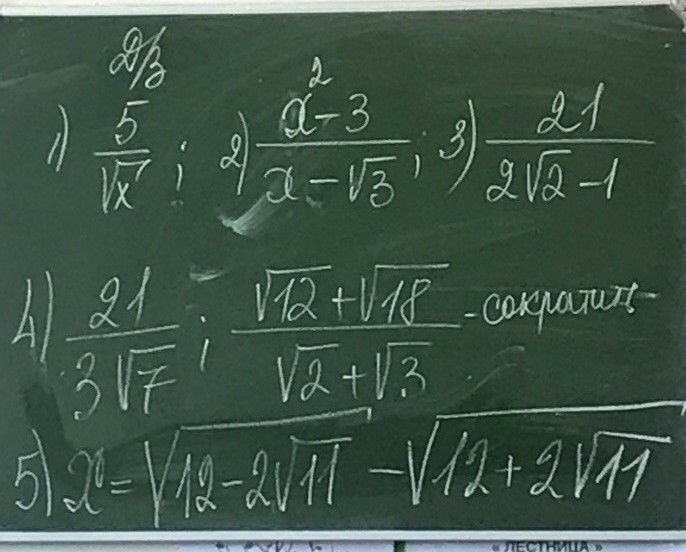 Д/З
1) 5/√x ; 2) (x² - 3)/(x - √3) ; 3) 21/(2√2 - 1)
4) 21/(3√7) ; (√12 + √18)/(√2 + √3) - сократить
5) x = √(12 - 2√11) - √(12 + 2√11)
« ЛЕСТНИЦА »